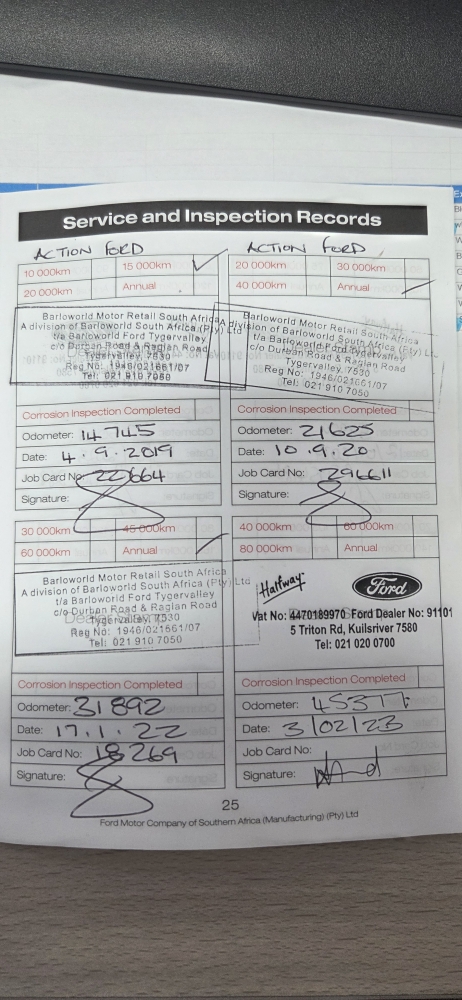 Service and Inspection Records
ACTION FORD
10 000km
15 000km
20 000km
Annual
Barloworld Motor Retail South Africa
A division of Barloworld South Africa (Pty) Ltd
t/a Barloworld Ford Tygervalley
c/o Durban Road & Raglan Road
Tygervalley, 7530
Reg No: 1946/021661/07
Tel: 021 910 7050
Corrosion Inspection Completed
Odometer: 14745
Date: 4.9.2019
Job Card No: 22664
Signature:
ACTION FORD
20 000km
30 000km
40 000km
Annual
Barloworld Motor Retail South Africa
A division of Barloworld South Africa (Pty) Lt
t/a Barloworld Ford Tygervalley
c/o Durban Road & Raglan Road
Tygervalley, 7530
Reg No: 1946/021661/07
Tel: 021 910 7050
Corrosion Inspection Completed
Odometer: 21625
Date: 10.9.20
Job Card No: 296611
Signature:
30 000km
45 000km
60 000km
Annual
Barloworld Motor Retail South Africa
A division of Barloworld South Africa (Pty) Ltd
t/a Barloworld Ford Tygervalley
c/o Durban Road & Raglan Road
Tygervalley, 7530
Reg No: 1946/021661/07
Tel: 021 910 7050
Corrosion Inspection Completed
Odometer: 31892
Date: 17.1.22
Job Card No: 18269
Signature:
40 000km
60 000km
80 000km
Annual
Halfway
Ford
Vat No: 4470189970 Ford Dealer No: 91101
5 Triton Rd, Kuilsriver 7580
Tel: 021 020 0700
Corrosion Inspection Completed
Odometer: 45377
Date: 3/02/23
Job Card No:
Signature:
25
Ford Motor Company of Southern Africa (Manufacturing) (Pty) Ltd